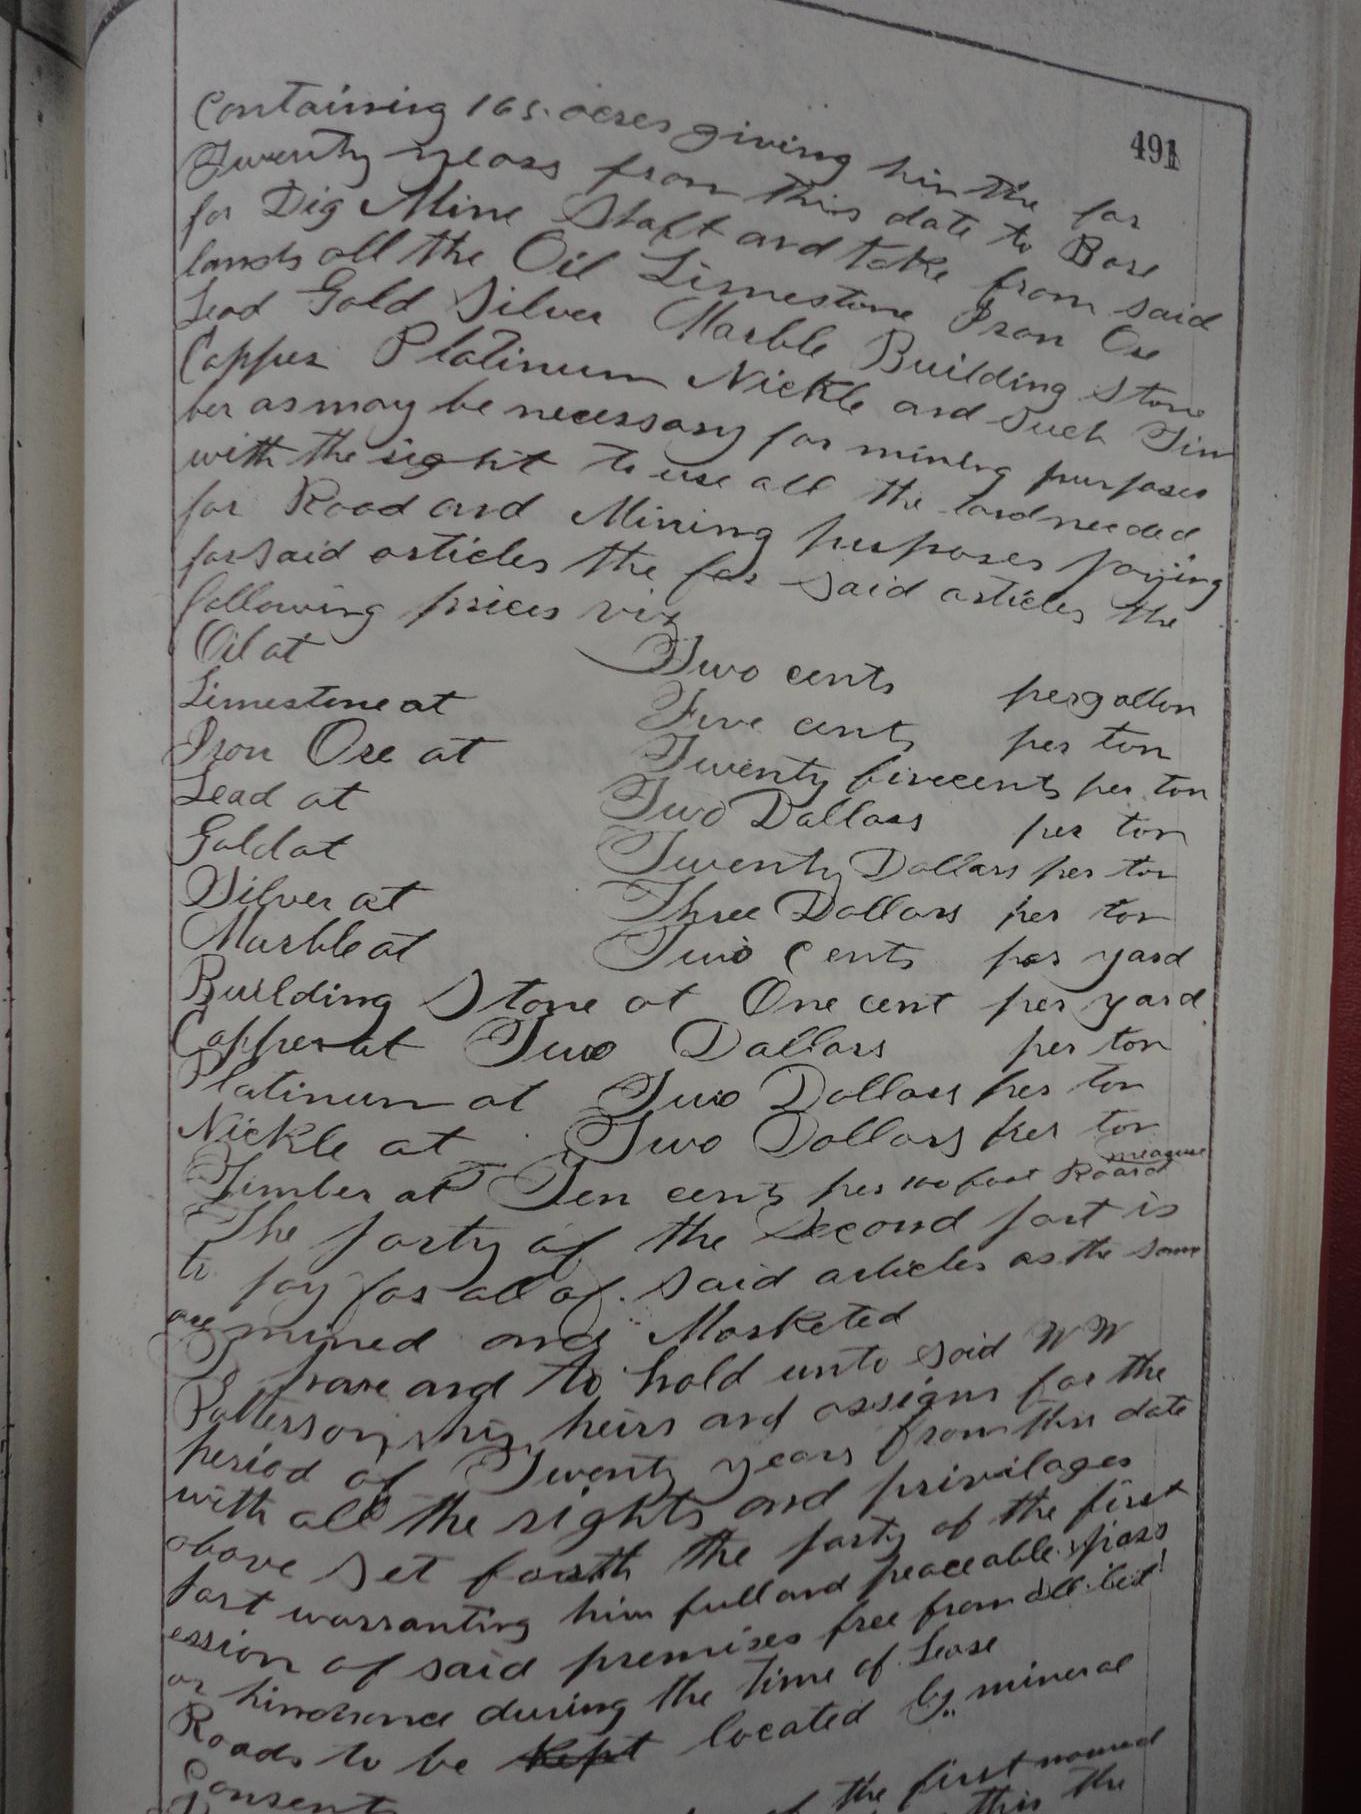 491
Containing 165 acres giving him the for
Twenty years from this date to Bore
for Dig Mine Shaft and take from said
lands all the Oil Limestone Iron Ore
Lead Gold Silver Marble Building Stone
Copper Platinum Nickle and Such Tim
ber as may be necessary for mining purposes
with the right to use all the land needed
for Road and Mining purposes paying
for said articles the for said articles the
following prices viz
Oil at Two cents per gallon
Limestone at Five cents per ton
Iron Ore at Twenty five cents per ton
Lead at Two Dollars per ton
Gold at Twenty Dollars per ton
Silver at Three Dollars per ton
Marble at Two Cents per yard
Building Stone at One cent per yard
Copper at Two Dollars per ton
Platinum at Two Dollars per ton
Nickle at Two Dollars per ton
Timber at Ten cents per 100 foot Board measure
The party of the Second part is
to pay for all of said articles as the same
are mined and Marketed
To have and to hold unto said W W
Patterson his heirs and assigns for the
period of Twenty years from this date
with all the rights and privilages
above Set forth the party of the first
part warranting him full and peaceable poss
ession of said premises free from all
or hindrance during the time of Lease
Roads to be kept located by mineral
Consent of the first named
this the